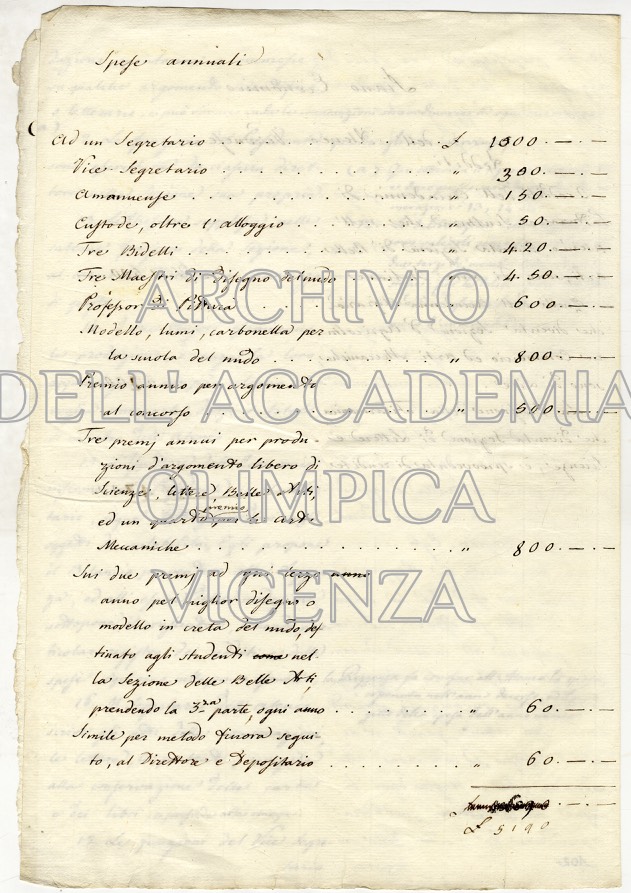 Spese annuali
Ad un Segretario . . . . . . . . . . £ 1000. — . —
Vice Segretario . . . . . . . . . . „ 300. — . —
Amanuense . . . . . . . . . . „ 150. — . —
Custode, oltre l'alloggio . . . . . . „ 50. — . —
Tre Bidelli . . . . . . . . . . „ 420. — . —
Tre Maestri di Disegno del nudo . . . . „ 450. — . —
Professor di Pittura . . . . . . . „ 600. — . —
Modello, lumi, carbonella per
la scuola del nudo . . . . . . . „ 800. — . —
Premio annuo per argomento
al concorso . . . . . . . . . . „ 500. — . —
Tre premj annui per produ-
zioni d'argomento libero di
Scienze, lettere e Belle Arti,
premio
ed un quarto per le Arti
Meccaniche . . . . . . . . . . „ 800. — . —
Sui due premj ad ogni terzo anno
anno pel miglior disegno o
modello in creta del nudo, des-
tinato agli studenti come nel-
la Sezione delle Belle Arti,
prendendo la 3.za parte, ogni anno . . . . . „ 60. — . —
Simile per metodo finora segui-
to, al Direttore e Depositario . . . . . „ 60. — . —
£ 5190
ARCHIVIO
DELL'ACCADEMIA
OLIMPICA
VICENZA